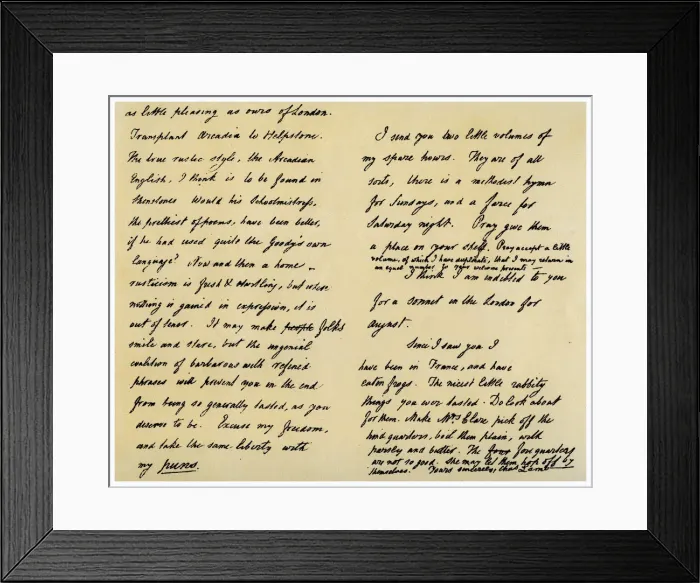 as little pleasing as ours of London.
Transplant Arcadia to Helpstone.
The true rustic style, the Arcadian
English, I think is to be found in
Shenstones. Would his Schoolmistress,
the prettiest of poems, have been better,
if he had used quite the Goody's own
language? Now and then a home
rusticism is fresh & startling, but where
nothing is gained in expression, it is
out of tenor. It may make people folks
smile and stare, but the ungenial
coalition of barbarous with refined
phrases will prevent you in the end
from being so generally tasted, as you
deserve to be. Excuse my freedom,
and take the same liberty with
my puns.
I send you two little volumes of
my spare hours. They are of all
sorts, there is a methodist hymn
for Sundays, and a farce for
Saturday night. Pray give them
a place on your shelf. Pray accept a little
volume, of which I have duplicate, that I may return in
an equal number to your welcome presents
I think I am indebted to you
for a sonnet in the London for
August.
Since I saw you I
have been in France, and have
eaten frogs. The nicest little rabbity
things you ever tasted. Do look about
for them. Make Mrs Clare pick off the
hind quarters, boil them plain, with
parsley and butter. The four fore quarters
are not so good. She may let them hop off by
themselves. Yours sincerely, Chas Lamb